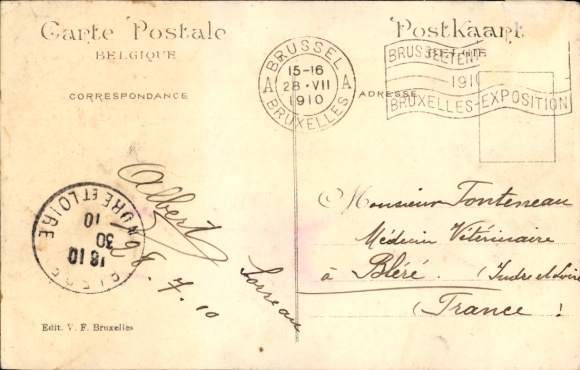 Carte Postale
BELGIQUE
CORRESPONDANCE
Postkaart
BELGIE
ADRESSE
BRUSSEL
15-16
A 28·VII A
1910
BRUXELLES
1910
BRUXELLES-EXPOSITION
Albert
28.7.10
INDRE ET LOIRE
18 10
30
10
Monsieur Fonteneau
Médecin Vétérinaire
à Bléré. (Indre et Loire
France !
Edit. V. F. Bruxelles